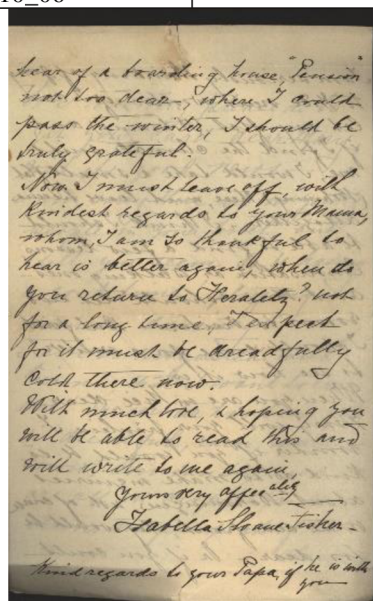 hear of a boarding house, "Pension"
not too dear, where I could
pass the winter, I should be
truly grateful.
Now I must leave off, with
Kindest regards to your Mama,
whom, I am so thankful to
hear is better again, when do
you return to Heraletz? not
for a long time, I expect
for it must be dreadfully
cold there now.
With much love, & hoping you
will be able to read this and
will write to me again,
Yours very affec:ately
Isabella Sloane Fisher -
Kind regards to your Papa, if he is with
you